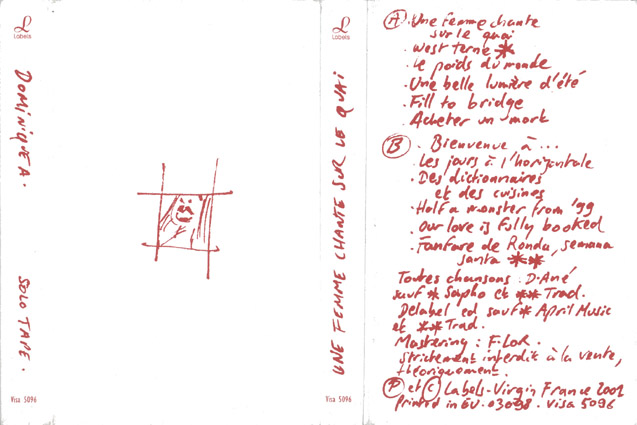 Labels
DOMINIQUE A.
SOLO TAPE.
Visa 5096
Labels
UNE FEMME CHANTE SUR LE QUAI
Visa 5096
A . Une femme chante
sur le quai
. West terne *
. Le poids du monde
. Une belle lumière d'été
. Fill to bridge
. Acheter un mort
B . Bienvenue à...
. Les jours à l'horizontale
. Des dictionnaires
et des cuisines
. Half a monster from '99
. Our love is fully booked
. Fanfare de Ronda, semana
santa **
Toutes chansons : D. Ané
sauf * Sapho et ** Trad.
Delabel ed sauf * April Music
et ** Trad.
Mastering : F. LOR.
Strictement interdit à la vente,
théoriquement.
P et C Labels-Virgin France 2002
Printed in EU. 03098. Visa 5096